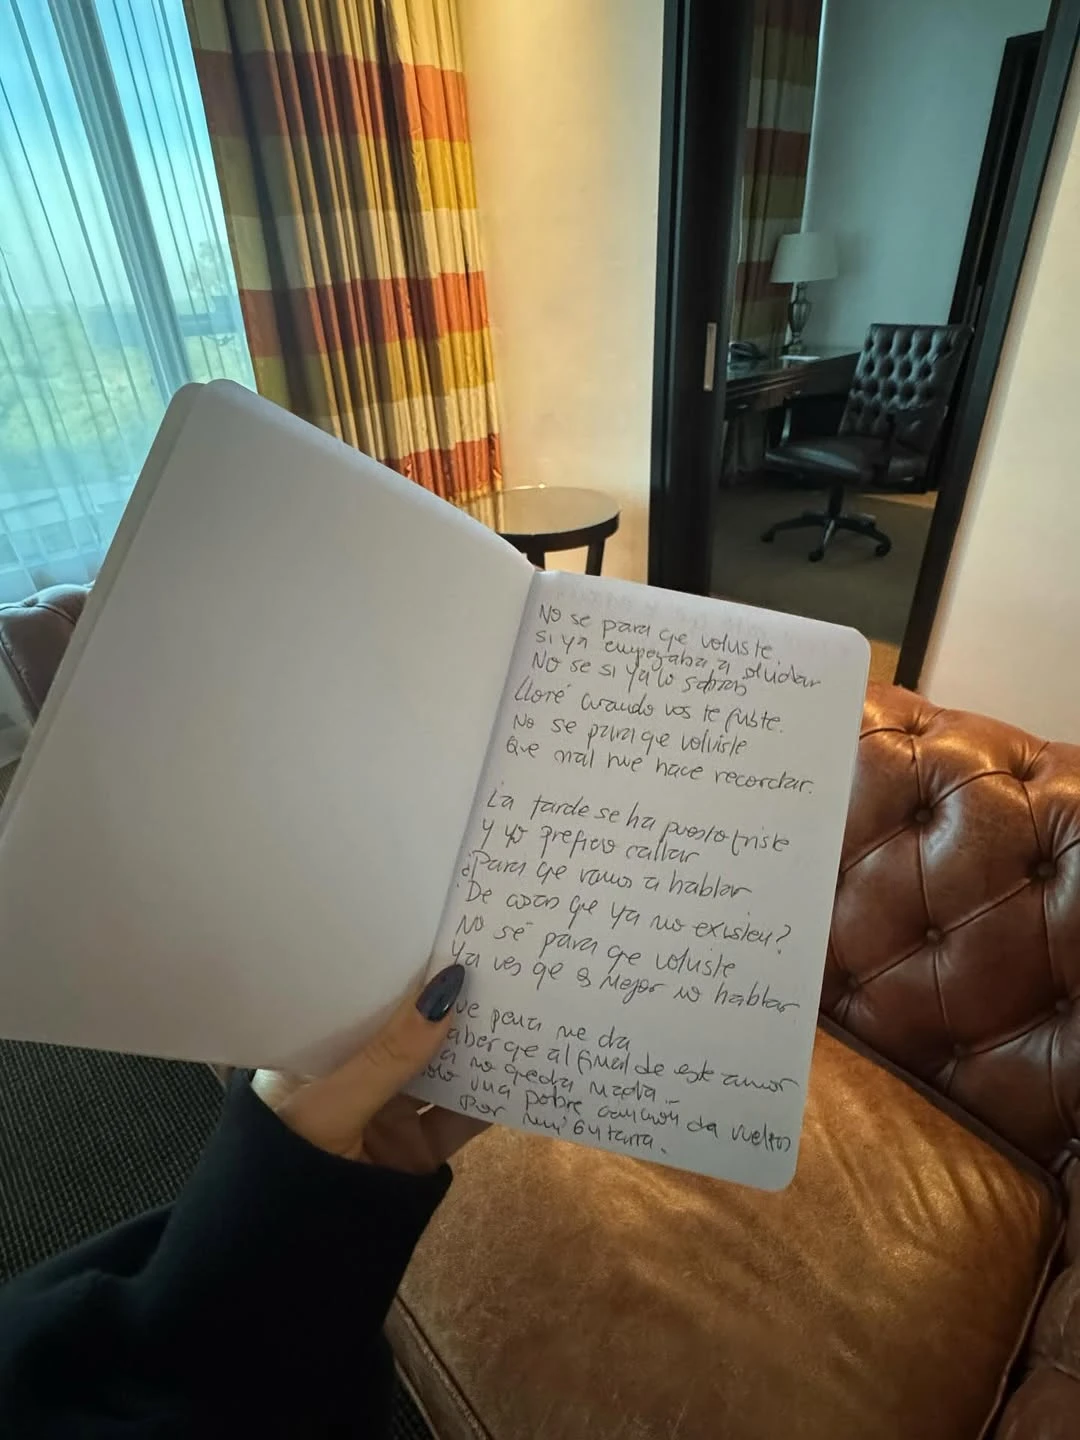 No se para qe volviste
si ya empezaba a olvidar
No se si ya lo sabrás
Lloré cuando vos te fuiste.
No se para qe volviste
Que mal me hace recordar.
La tarde se ha puesto triste
y yo prefiero callar
¿Para qe vamos a hablar
De cosas qe ya no existen?
No sé para qe volviste
Ya ves qe es mejor no hablar
ue pena me da
aber qe al final de este amor
a no queda nada
olo una pobre canción da vueltas
por mi Guitarra.